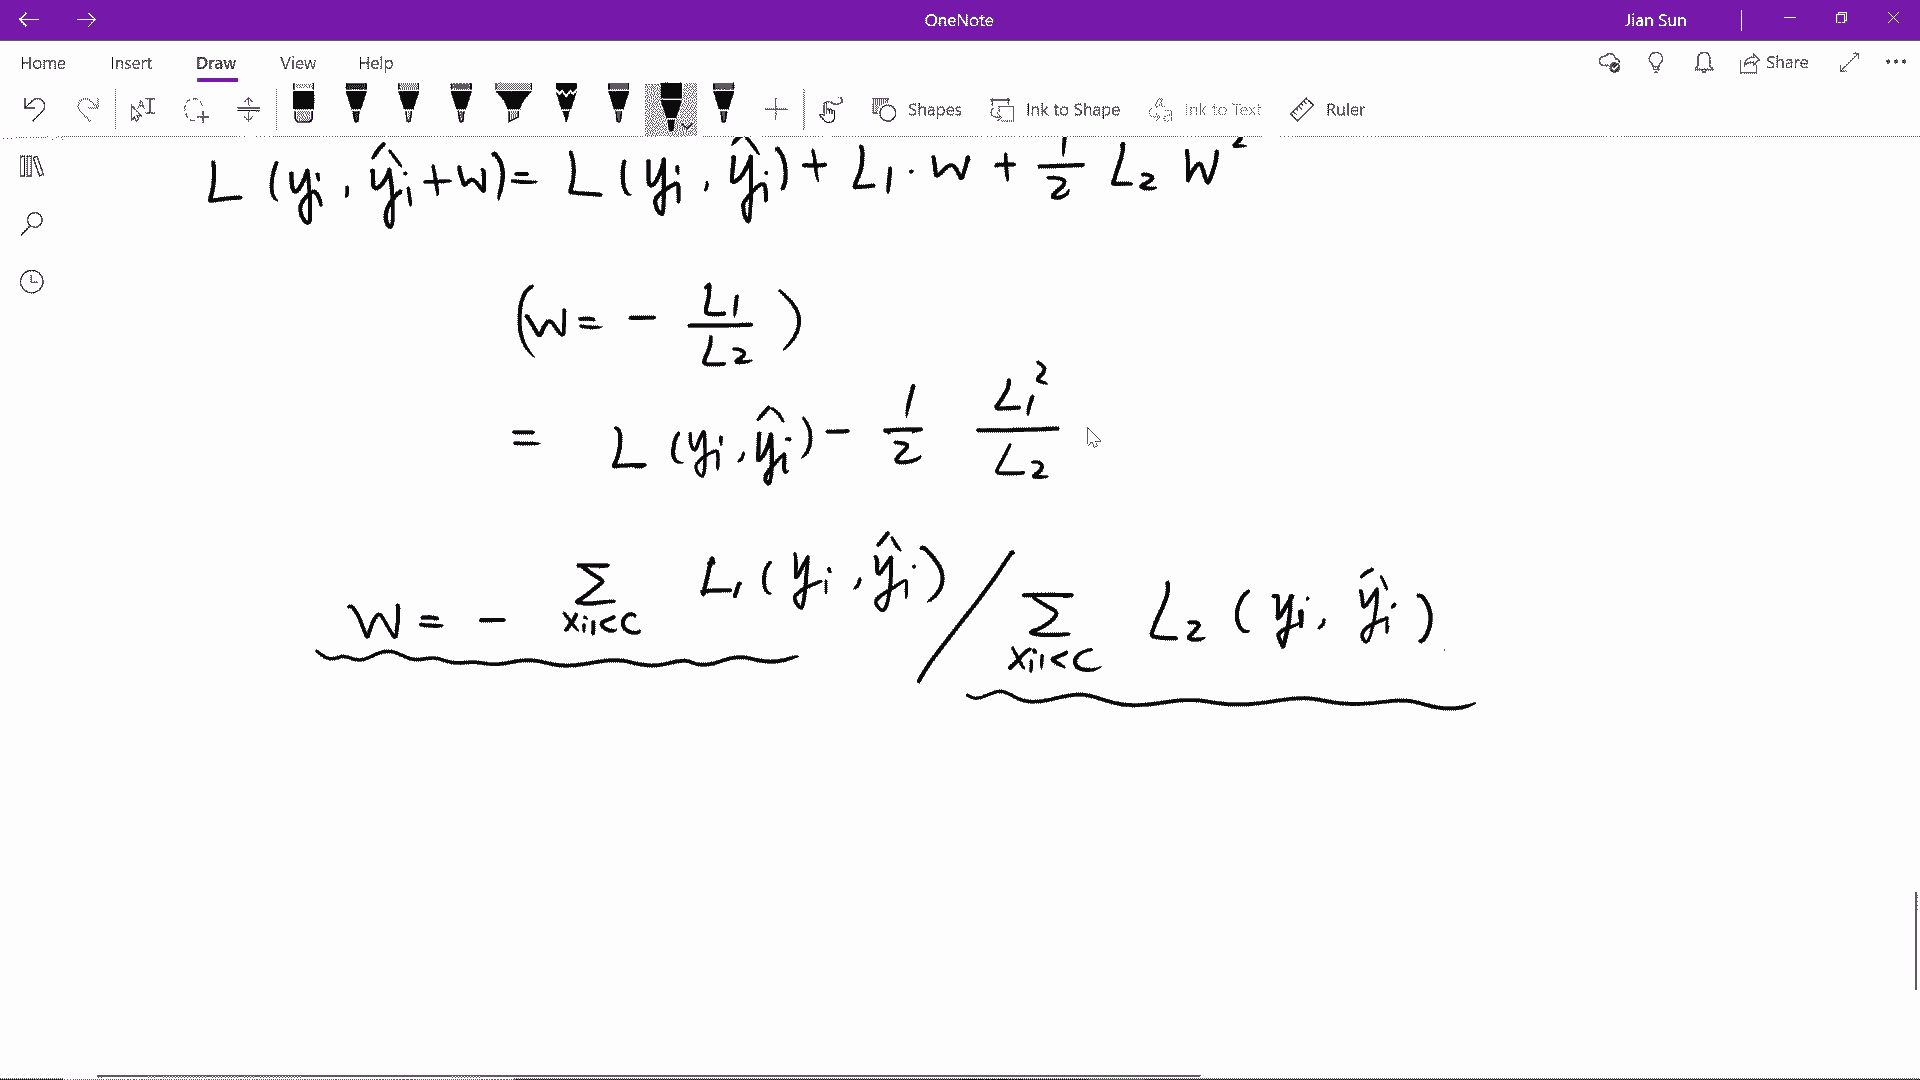 OneNote
Jian Sun
Home Insert Draw View Help
Share
Shapes Ink to Shape Ink to Text Ruler
L (yi, ŷi+w) = L (yi, ŷi) + L₁ · w + 1/2 L₂ w²
(w = - L₁/L₂)
= L (yi, ŷi) - 1/2 L₁²/L₂
w = - Σ_{xi1<c} L₁(yi, ŷi) / Σ_{xi1<c} L₂(yi, ŷi)